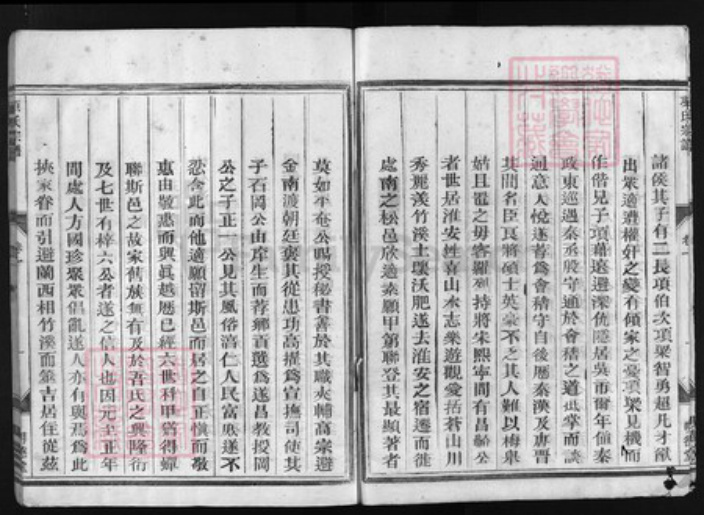 諸侯其子有二長項伯次項梁智勇超凡才猷
出眾適遭權奸之變有傾家之憂項梁見機而
作偕兄子項藉遠避深仇隱居吳市爾年值秦
政東巡過秦丞殷守通於會稽之道抵掌而談
通意人悅遂薦為會稽守自後歷秦漢及唐晉
其間名臣良將碩士英豪不乏其人難以梅舉
姑且置之毋容羅列持將宋熙寧間有昌齡公
者世居淮安性喜山水志樂遊觀愛括蒼山川
秀麗渓竹溪土壤沃肥遂去淮安之宿遷而徙
處南之松邑欣適素願甲第聯登其最顯著者
莫如平菴公賜授秘書善於其職夾輔高宗避
金南渡朝廷褒其從忠功高擢為宣撫司使其
子石岡公由岸生而荐鄉貢選為遂昌教授岡
公之子正一公見其風俗淳仁人民富庶遂不
戀舍此而他適願留斯邑而居之自正慎而敬
惠由敬惠而興眞越歷已經六世科甲為得蟬
聯斯邑之故家舊族無有及於吾氏之興隆衍
及七世有梓六公者遂之信人也因元主正年
間處人方國珍聚眾倡亂遂人亦有與焉為此
挾家眷而引避蘭西相竹溪而靈吉居住從茲
項氏宗譜
卷一